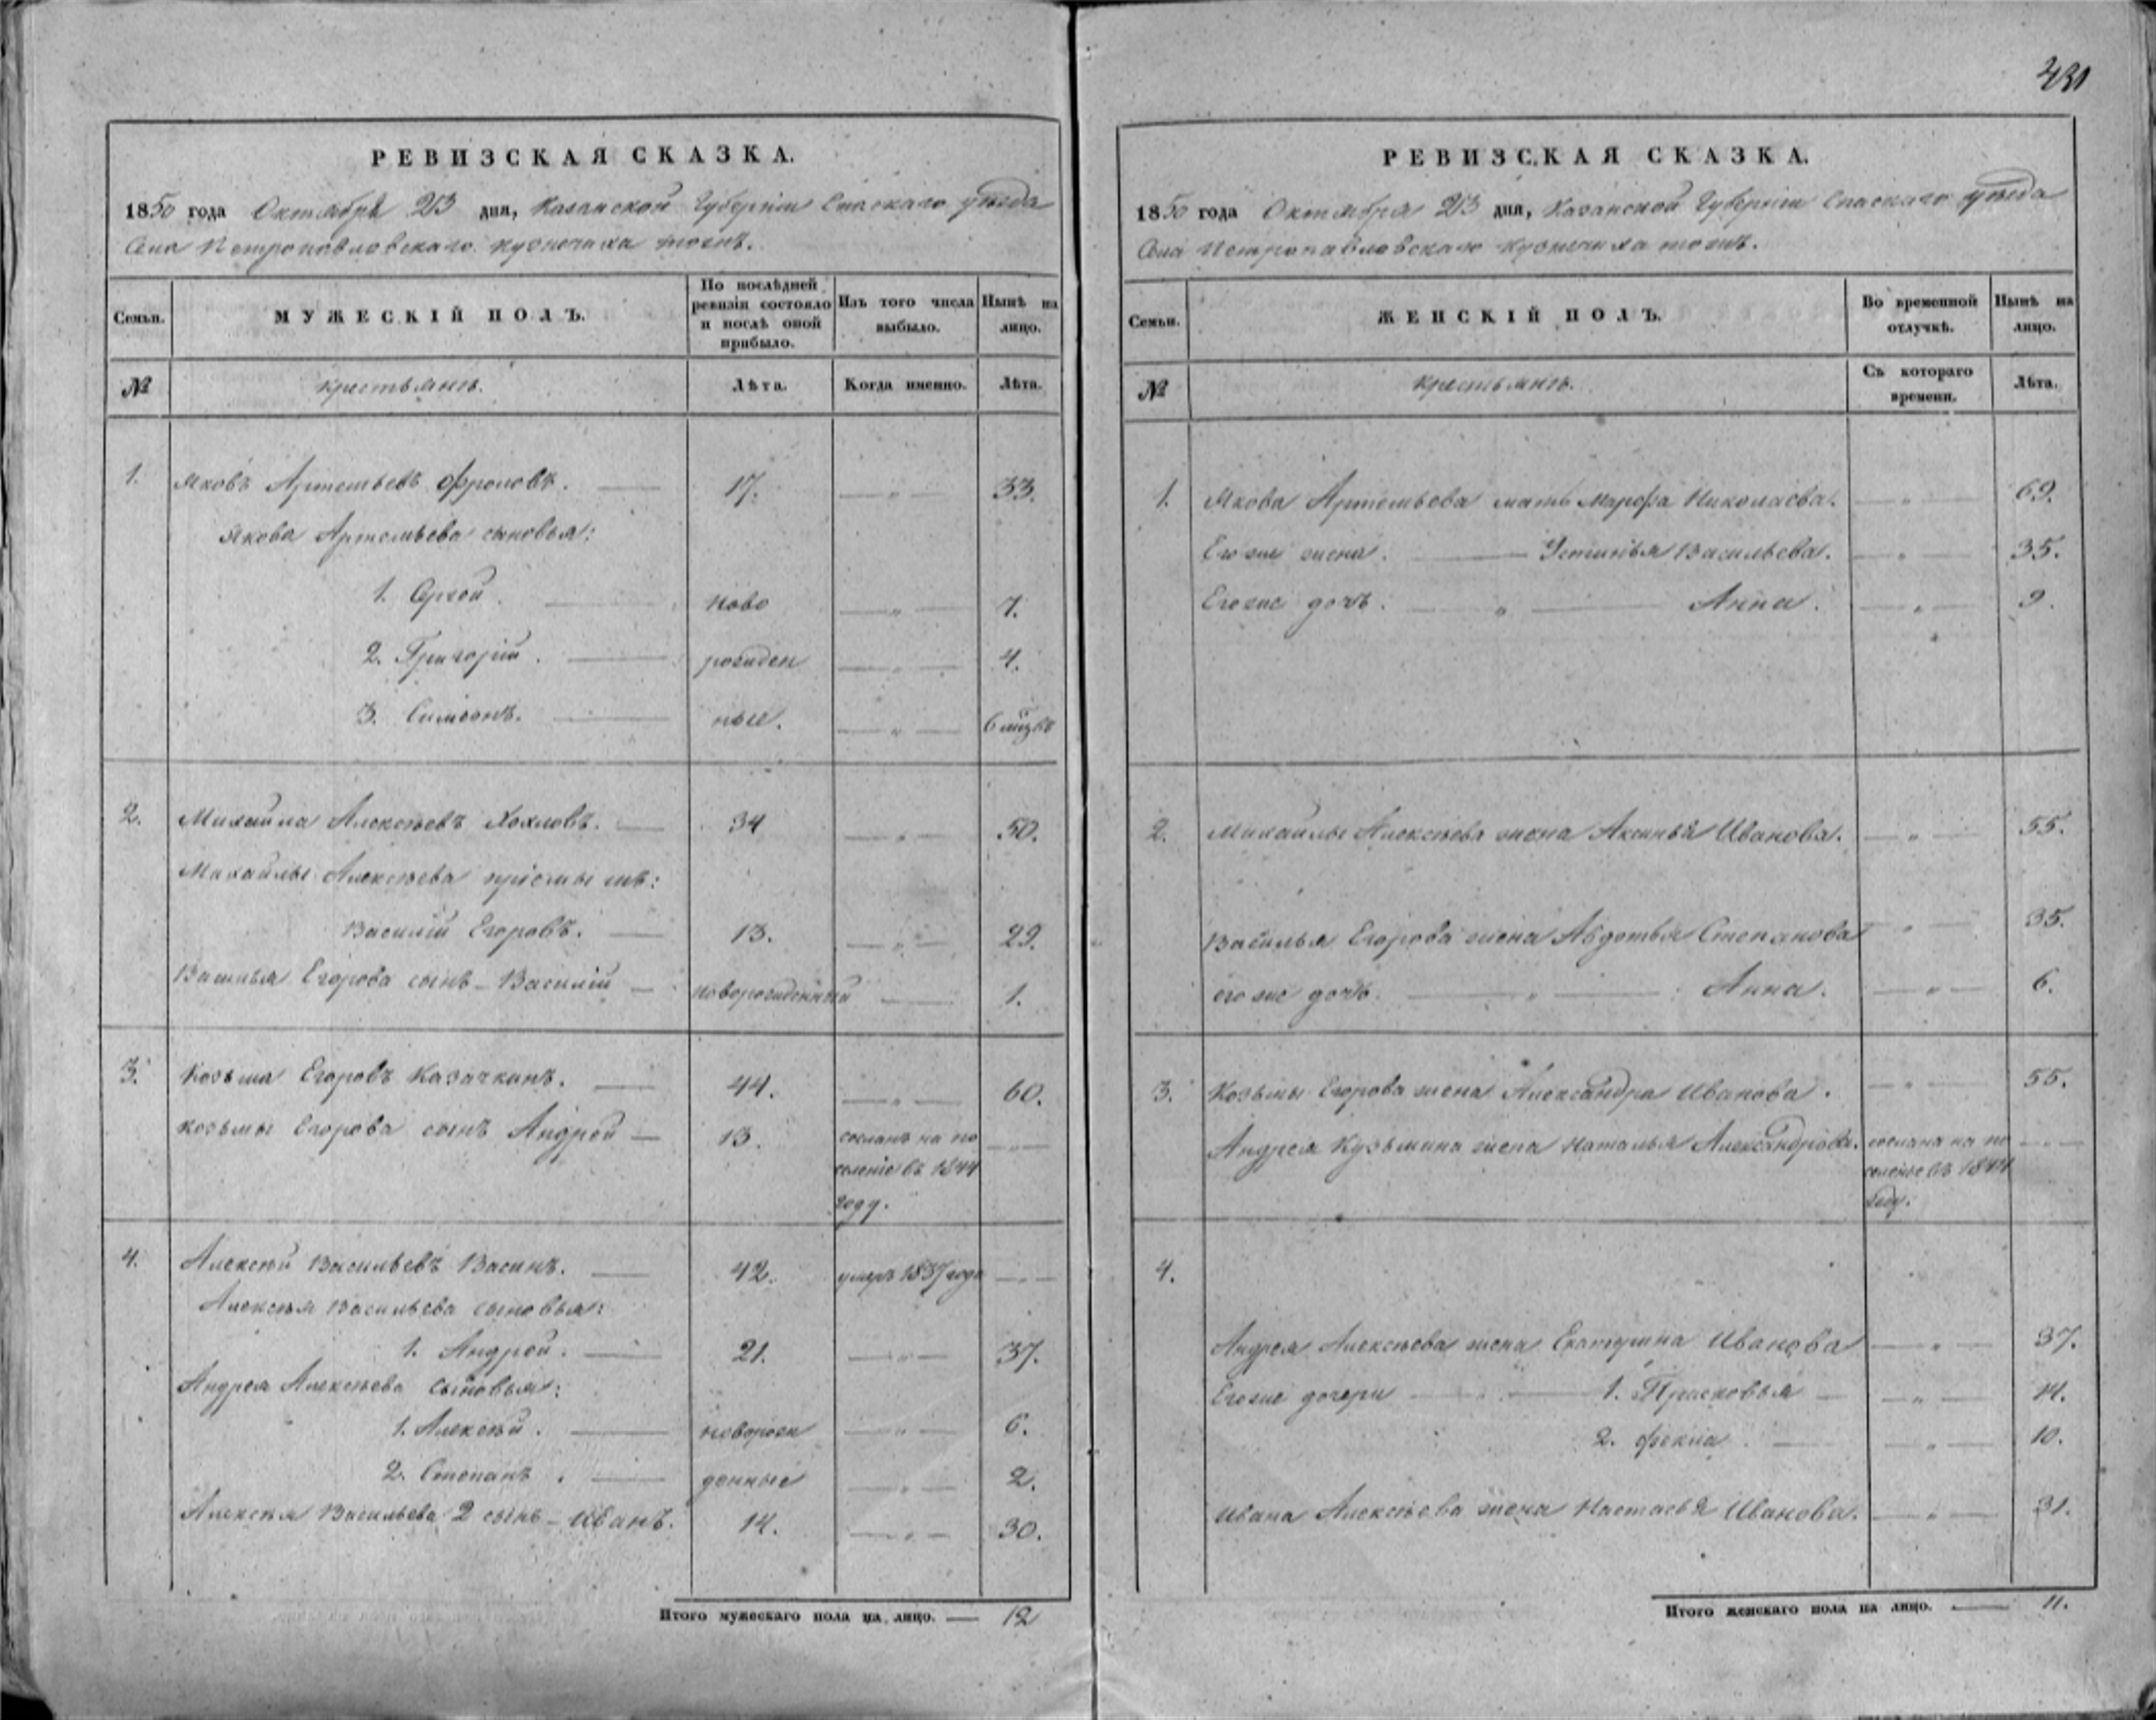 431
РЕВИЗСКАЯ СКАЗКА.
1850 года Октября 23 дня, Казанской Губерніи Спаскаго уѣзда
Села Петропавловскаго Кузнечиха тожъ.
Семьи. МУЖЕСКІЙ ПОЛЪ. По послѣдней ревизіи состояло и послѣ оной прибыло. Изъ того числа выбыло. Нынѣ на лицо.
№ крестьянъ. Лѣта. Когда именно. Лѣта.
1. Яковъ Артемьевъ Фроловъ. — 17. — „ — 33.
Якова Артемьева сыновья:
1. Сргей. — ново — „ — 7.
2. Григорій. — рожден — „ — 4.
3. Симеонъ. — ные. — „ — 6 мѣцвъ
2. Михайла Алексѣевъ Хохловъ. — 34 — „ — 50.
Михайлы Алексѣева пріемышъ:
Василій Егоровъ. — 13. — „ — 29.
Василья Егорова сынъ – Василій — новорожденный — 1.
3. Козьма Егоровъ Казачкинъ. — 44. — „ — 60.
Козьмы Егорова сынъ Андрей — 13. сосланъ на по — „ —
селеніе въ 1844
году.
4. Алексѣй Васильевъ Васинъ. — 42. умеръ 1837 года — —
Алексѣя Васильева сыновья:
1. Андрей. — 21. — „ — 37.
Андрея Алексѣева сыновья:
1. Алексѣй. —новорож — „ — 6.
2. Степанъ. — денные — „ — 2.
Алексѣя Васильева 2 сынъ – Иванъ. 14. — „ — 30.
Итого мужескаго пола на лицо. — 12
РЕВИЗСКАЯ СКАЗКА.
1850 года Октября 23 дня, Казанской Губерніи Спаскаго уѣзда
Села Петропавловскаго Кузнечиха тожъ.
Семьи. ЖЕНСКІЙ ПОЛЪ. Во временной отлучкѣ. Нынѣ на лицо.
№ крестьянъ. Съ котораго времени. Лѣта.
1. Якова Артемьева мать Марфа Николаева. — „ — 69.
Его же жена. — Устинья Васильева. — „ — 35.
Его же дочь. — „ — Анна. — „ — 9.
2. Михайлы Алексѣева жена Аксинья Иванова. — „ — 55.
Василья Егорова жена Авдотья Степанова — „ — 35.
его же дочь. — „ — Анна. — „ — 6.
3. Козьмы Егорова жена Александра Иванова. — „ — 55.
Андрея Кузьмина жена Наталья Александрова. сослана на по — „ —
селенье въ 1844
году.
4.
Андрея Алексѣева жена Екатерина Иванова — „ — 37.
Его же дочери — „ — 1. Прасковья — — „ — 14.
2. Фекла. — — „ — 10.
Ивана Алексѣева жена Настасья Иванова. — „ — 31.
Итого женскаго пола на лицо. — 11.